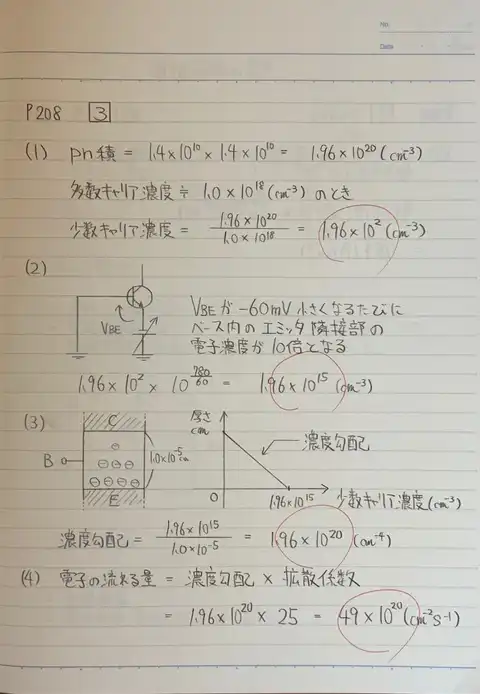 No.
Date
P208 3
(1) pn積 = 1.4×10¹⁰ × 1.4×10¹⁰ = 1.96×10²⁰(cm⁻³)
多数キャリア濃度 ≒ 1.0×10¹⁸(cm⁻³) のとき
少数キャリア濃度 = 1.96×10²⁰ / 1.0×10¹⁸ = 1.96×10²(cm⁻³)
(2)
VBE
VBEが-60mV小さくなるたびに
ベース内のエミッタ隣接部の
電子濃度が10倍となる
1.96×10² × 10^(780/60) = 1.96×10¹⁵(cm⁻³)
(3)
C
B
E
1.0×10⁻⁵cm
厚さ
cm
濃度勾配
0
1.96×10¹⁵
少数キャリア濃度(cm⁻³)
濃度勾配 = 1.96×10¹⁵ / 1.0×10⁻⁵ = 1.96×10²⁰(cm⁻⁴)
(4) 電子の流れる量 = 濃度勾配 × 拡散係数
= 1.96×10²⁰ × 25 = 49×10²⁰(cm⁻²s⁻¹)